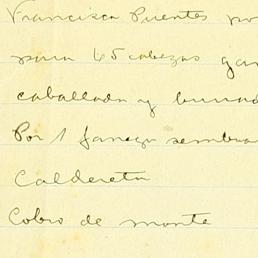 Francisca Puentes po
para 65 cabezas gan
caballada y burrad
Por 1 fanega sembra
Caldereta
Cobro de monte